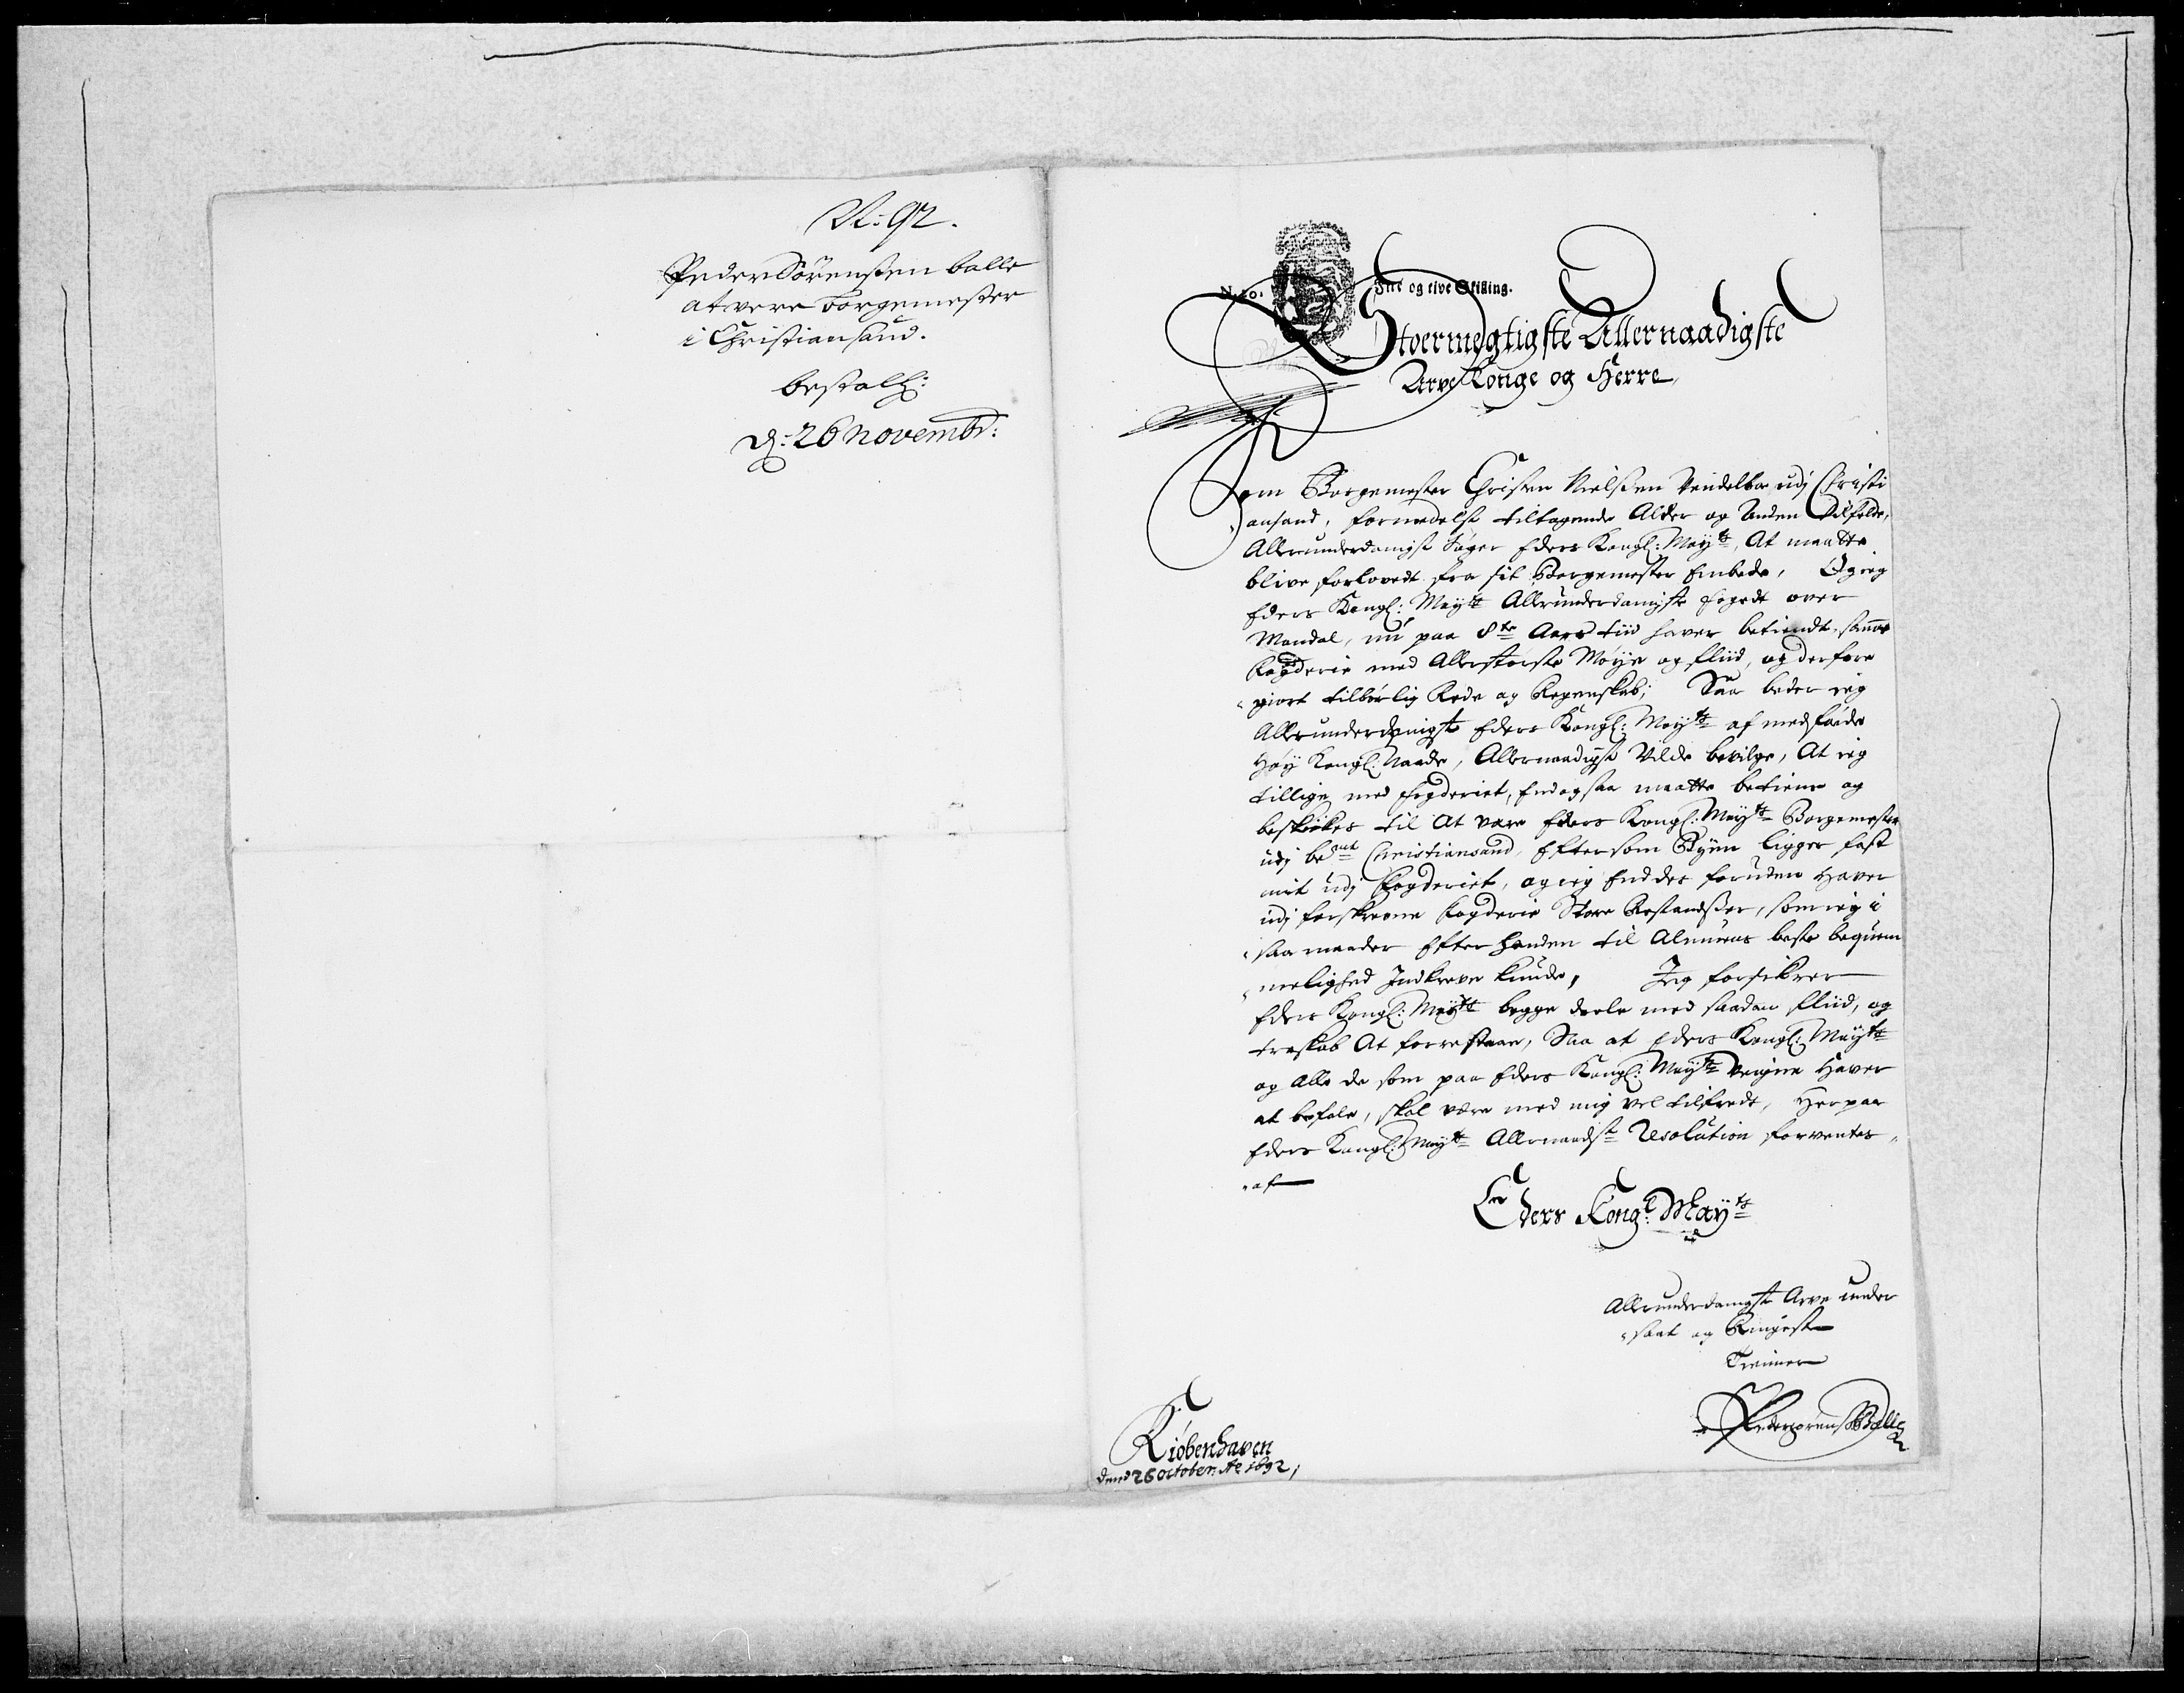 N: 92.
Peder Sörensen balle
at være borgemester
i Christiansand.
bestalh:
d: 26 novembr:
N. 20. Fire og tive Skilling.
Stoermegtigste Allernaadigste
Arve Konge og Herre,
Som Borgemester Christen Nielsen Vendelboe udj Christi
ansand, formedelst tiltagende Alder og Anden Tilfelde,
Allerunderdanigst søger Eders Kongl: Maytt, At maatte
blive forlovedt fra sit Borgemester Embede, Og ieg
Eders Kongl: Maytt Allerunderdanigste fogedt over
Mandal, nu paa 8te Aars tiid haver betiendt samme
fogderie med Allerstørste Møije og fliid, og derfore
giort tilbørlig Rede og Regenskab; Saa beder ieg
Allerunderdanigst Eders Kongl: Maytt af medføde
Høy Kongl: Naade, Allernaadigst Vilde bevilge, At ieg
tillige med fogderiet, End og saa maatte betiene og
beskikes til At være Eders Kongl: Maytts Borgemester
udj bemt Christiansand, Eftersom Byen ligger fast
mit udj fogderiet, og ieg End des foruden haver
udj forskrevne fogderie Store Restandser, som ieg i
saa maader Efter handen til Almuens beste beqvem
melighed Indkreve kunde, Jeg forsikrer
Eders Kongl: Maytt begge deele med saadan fliid, og
troskab At forrestaae, Saa at Eders Kongl: Maytt
og Alle de som paa Eders Kongl: Maytts Veigne haver
at befale, skal være med mig vel tilfredt, Her paa
Eders Kongl: Maytts Allernaadste Resolution forventes
af
Eders Kongl: Maytts
Allerunderdanigste Arve under
saat og Ringeste
Tienner
Peder Sørens Balle
Kiøbenhaven
dend 26 October Ao 1692,